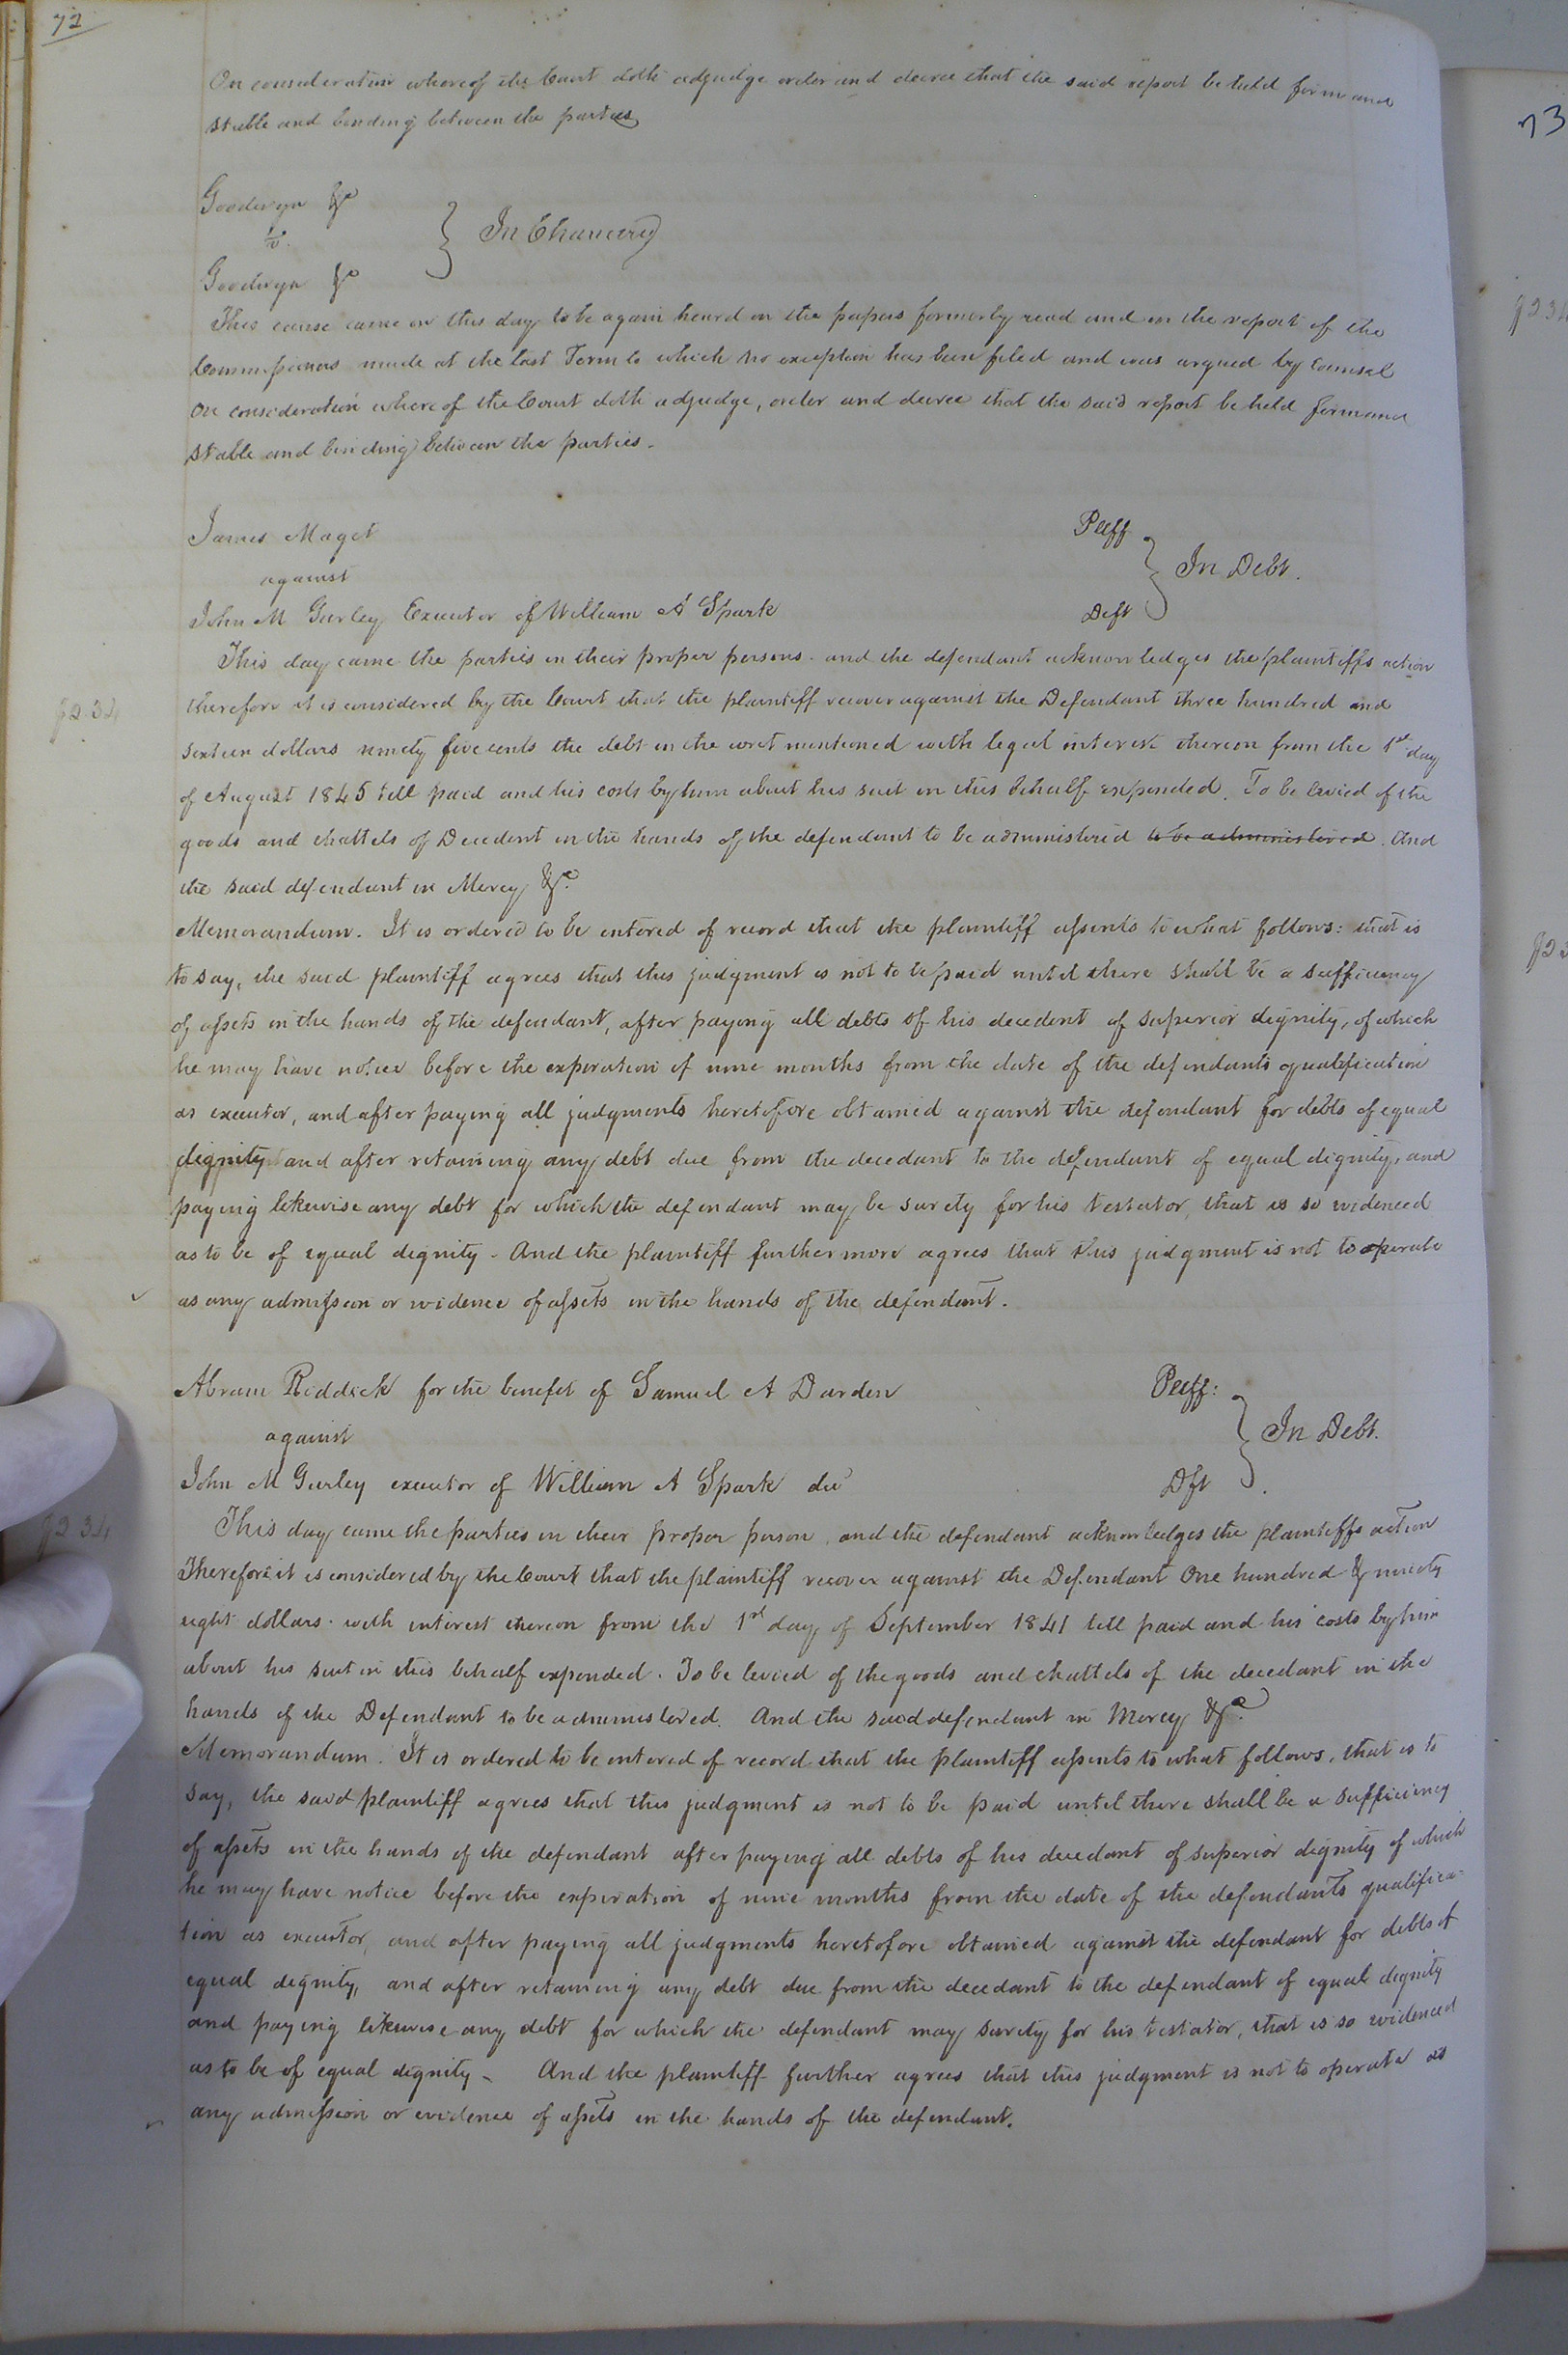 72
On consideration whereof the Court doth adjudge order and decree that the said report be held firm and
stable and binding between the parties
Goodwyn &c
vs.
Goodwyn &c
} In Chancery
This cause came on this day to be again heard on the papers formerly read and on the report of the
Commissioners made at the last Term to which no exception has been filed and was argued by counsel
On consideration whereof the Court doth adjudge, order and decree that the said report be held firm and
stable and binding between the parties.
James Maget Plff
against } In Debt.
John M Gurley Executor of William A Spark Deft
This day came the parties in their proper persons. and the defendant acknowledges the plaintiffs action
therefore it is considered by the Court that the plaintiff recover against the Defendant three hundred and
sixteen dollars ninety five cents the debt in the writ mentioned with legal interest thereon from the 1st day
of August 1845 till paid and his costs by him about his suit in this behalf expended. To be levied of the
goods and chattels of Decedent in the hands of the defendant to be administered to be administered. And
the said defendant in Mercy &c.
Memorandum. It is ordered to be entered of record that the plaintiff assents to what follows: that is
to say, the said plaintiff agrees that this judgment is not to be paid until there shall be a sufficiency
of assets in the hands of the defendant, after paying all debts of his decedent of superior dignity, of which
he may have notice before the expiration of nine months from the date of the defendants qualification
as executor, and after paying all judgments heretofore obtained against the defendant for debts of equal
dignity and after retaining any debt due from the decedant to the defendant of equal dignity, and
paying likewise any debt for which the defendant may be surety for his testator, that is so evidenced
as to be of equal dignity - And the plaintiff furthermore agrees that this judgment is not to operate
as any admission or evidence of assets in the hands of the defendant.
Abram Riddick for the benefit of Samuel A Darden Plff:
against } In Debt.
John M Gurley executor of William A Spark dec Dft
This day came the parties in their proper person, and the defendant acknowledges the plaintiffs action
Therefore it is considered by the Court that the plaintiff recover against the Defendant One hundred & ninety
eight dollars. with interest thereon from the 1st day of September 1841 till paid and his costs by him
about his suit in this behalf expended. To be levied of the goods and chattels of the decedant in the
hands of the Defendant to be administered. And the said defendant in Mercy &c.
Memorandum. It is ordered to be entered of record that the plaintiff assents to what follows, that is to
say, the said plaintiff agrees that this judgment is not to be paid until there shall be a sufficiency
of assets in the hands of the defendant after paying all debts of his decedant of superior dignity of which
he may have notice before the expiration of nine months from the date of the defendants qualifica-
tion as executor, and after paying all judgments heretofore obtained against the defendant for debts of
equal dignity, and after retaining any debt due from the decedant to the defendant of equal dignity
and paying likewise any debt for which the defendant may surety for his testator, that is so evidenced
as to be of equal dignity - And the plaintiff further agrees that this judgment is not to operate as
any admission or evidence of assets in the hands of the defendant.
73